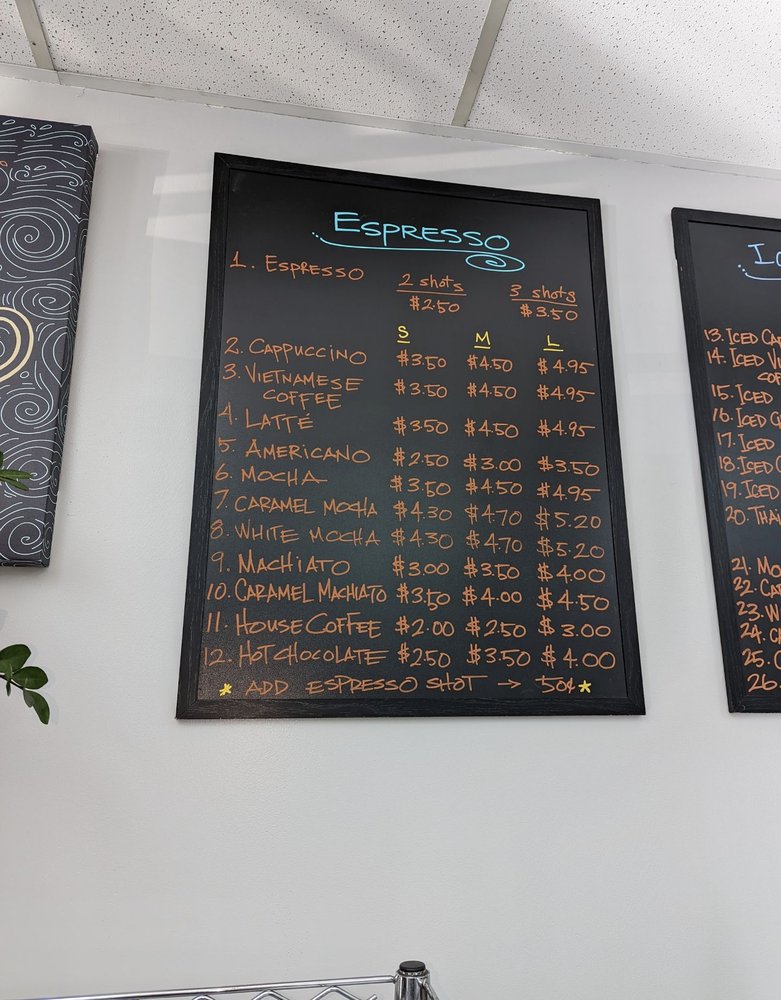 Espresso
1. Espresso 2 shots 3 shots
$2.50 $3.50
S M L
2. Cappuccino $3.50 $4.50 $4.95
3. Vietnamese
Coffee $3.50 $4.50 $4.95
4. Latté $3.50 $4.50 $4.95
5. Americano $2.50 $3.00 $3.50
6. Mocha $3.50 $4.50 $4.95
7. Caramel Mocha $4.30 $4.70 $5.20
8. White Mocha $4.30 $4.70 $5.20
9. Machiato $3.00 $3.50 $4.00
10. Caramel Machiato $3.50 $4.00 $4.50
11. House Coffee $2.00 $2.50 $3.00
12. Hot Chocolate $2.50 $3.50 $4.00
* Add Espresso Shot → 50¢ *
13. Iced
14. Iced
15. Iced
16. Iced
17. Iced
18. Iced
19. Iced
20. Thai
21.
22.
23.
24.
25.
26.